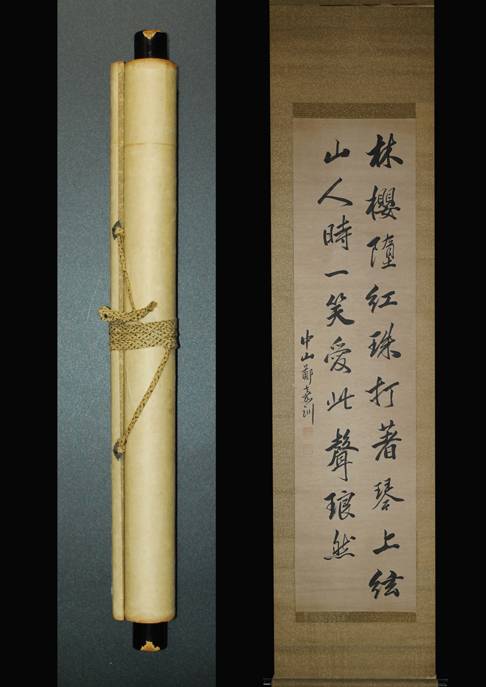 林櫻墮紅珠打著琴上絃
山人時一笑愛此聲琅然
中山鄭嘉訓